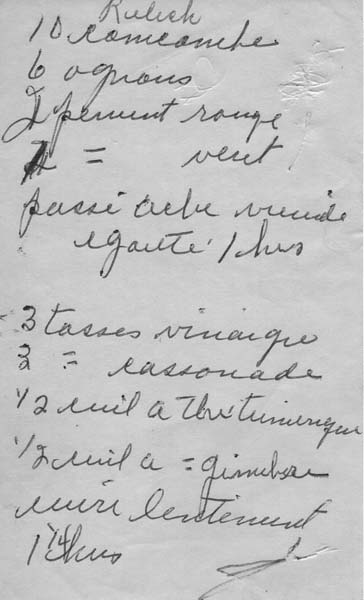 Relish
10 concombe
6 ognons
2 piment rouge
2 = vert
passé ache viende
egouté 1 hrs
3 tasses vinaigre
3 = cassonade
1/2 cuil a thé tumerique
1/2 cuil a = gimebre
cuire lentement
1 1/4 hrs